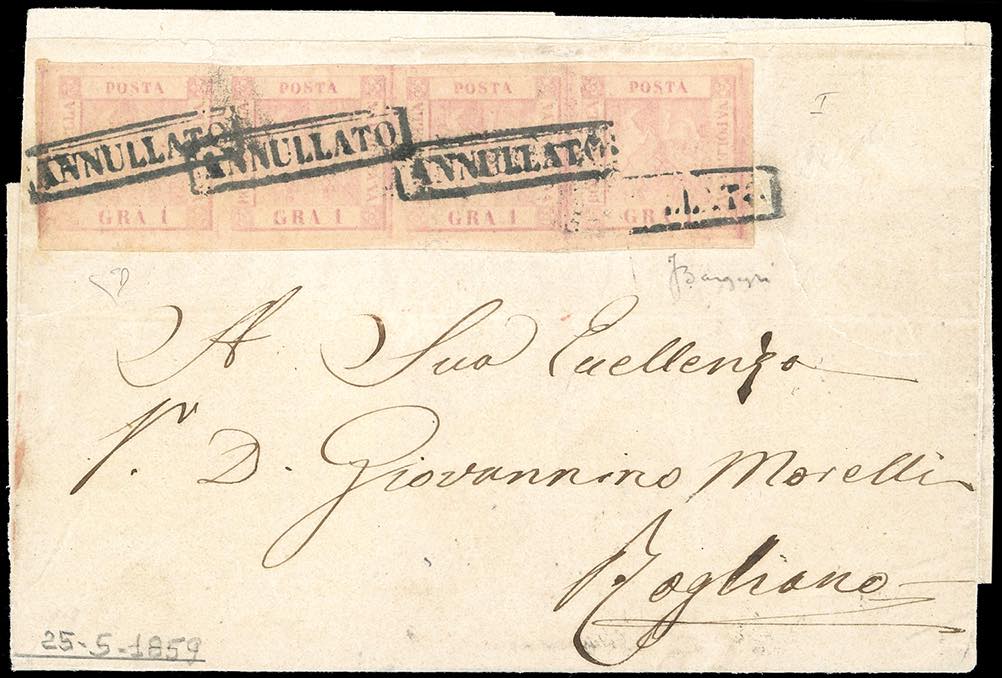 POSTA POSTA POSTA POSTA
NAPOLI
ANNULLATO ANNULLATO ANNULLATO LLATO
GRA 1 GRA 1 GRA 1 GRA 1
I
A Sua Eccellenza
D. Giovannino Morelli
Rogliano
25-5-1859